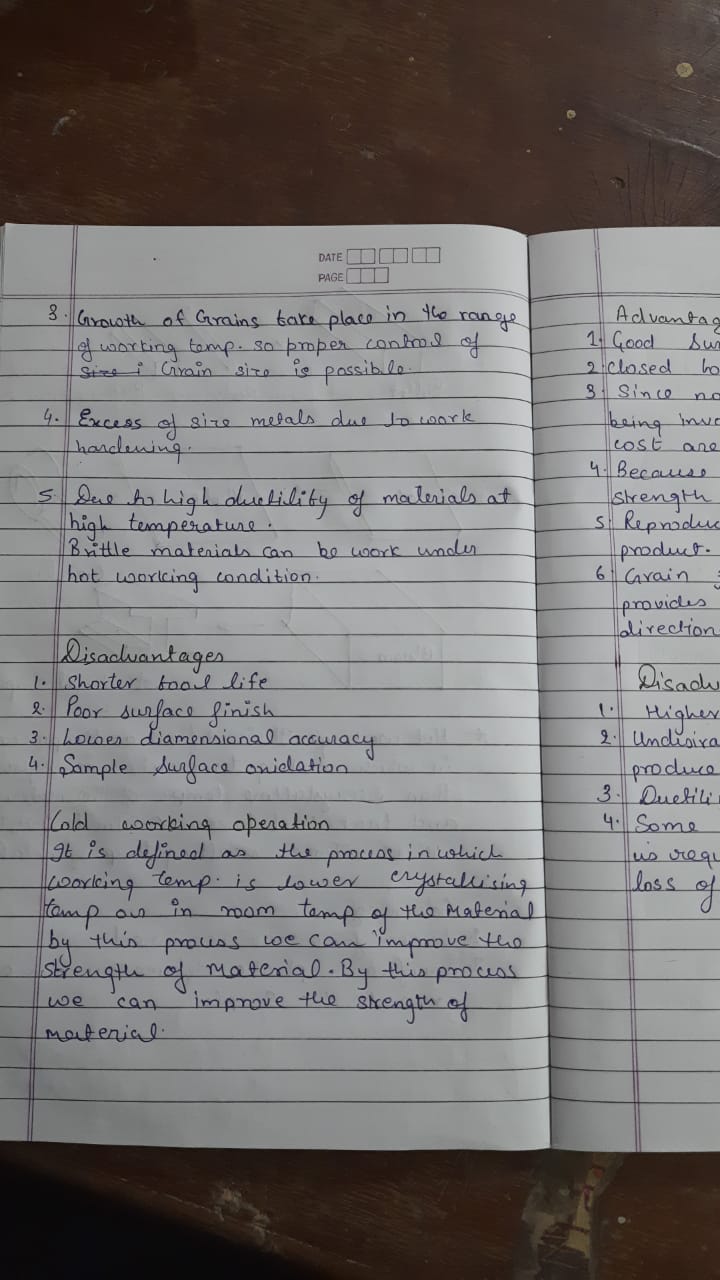 DATE
PAGE
3. Growth of Grains take place in the range
of working temp. so proper control of
Grain size is possible.
4. Excess of size metals due to work
hardening.
5. Due to high ductility of materials at
high temperature.
Brittle materials can be work under
hot working condition.
Disadvantages
1. Shorter tool life
2. Poor surface finish
3. Lower diamensional accuracy
4. Sample Surface oxidation
Cold working operation
It is defined as the process in which
working temp. is lower crystallising
temp or in room temp of the Material
by this process we can improve the
strength of material. By this process
we can improve the strength of
material.
Advantag
1. Good Sur
2. closed to
3. Since no
being invo
cost are
4. Because
strength
5. Reproduc
product.
6. Grain
provides
direction
Disadu
1. Higher
2. Undisira
produce
3. Ductili
4. Some
is requ
loss of